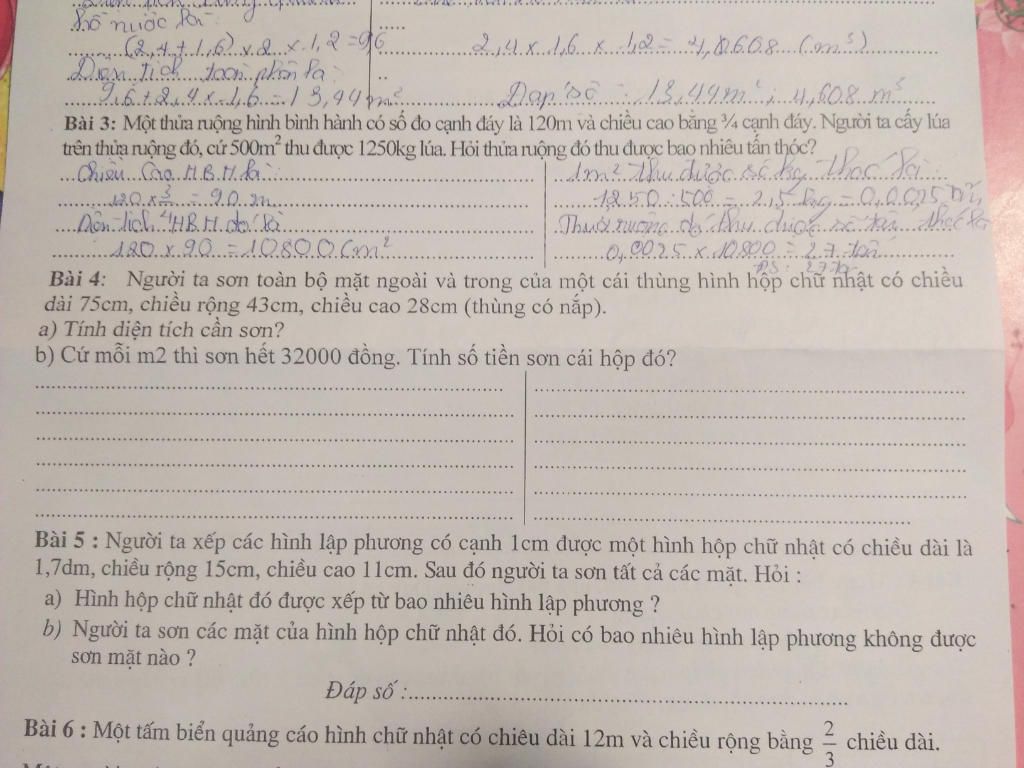 hồ nước là:
(2,4 + 1,6) x 2 x 1,2 = 9,6
2,4 x 1,6 x 1,2 = 4,608 (m³)
Diện tích toàn phần là:
9,6 + 2,4 x 1,6 = 13,44 m²
Đáp số: 13,44 m²; 4,608 m³
Bài 3: Một thửa ruộng hình bình hành có số đo cạnh đáy là 120m và chiều cao bằng ¾ cạnh đáy. Người ta cấy lúa
trên thửa ruộng đó, cứ 500m² thu được 1250kg lúa. Hỏi thửa ruộng đó thu được bao nhiêu tấn thóc?
Chiều cao HBH là:
120 x 3/4 = 90 m
Diện tích HBH đó là
120 x 90 = 10800 (m²
1m² thu được số kg thóc là:
1250 : 500 = 2,5 kg = 0,0025 tấn
Thửa ruộng đó thu được số tấn thóc là
0,0025 x 10800 = 27 tấn
ĐS: 27 tấn
Bài 4: Người ta sơn toàn bộ mặt ngoài và trong của một cái thùng hình hộp chữ nhật có chiều
dài 75cm, chiều rộng 43cm, chiều cao 28cm (thùng có nắp).
a) Tính diện tích cần sơn?
b) Cứ mỗi m2 thì sơn hết 32000 đồng. Tính số tiền sơn cái hộp đó?
Bài 5 : Người ta xếp các hình lập phương có cạnh 1cm được một hình hộp chữ nhật có chiều dài là
1,7dm, chiều rộng 15cm, chiều cao 11cm. Sau đó người ta sơn tất cả các mặt. Hỏi :
a) Hình hộp chữ nhật đó được xếp từ bao nhiêu hình lập phương ?
b) Người ta sơn các mặt của hình hộp chữ nhật đó. Hỏi có bao nhiêu hình lập phương không được
sơn mặt nào ?
Đáp số :
Bài 6 : Một tấm biển quảng cáo hình chữ nhật có chiêu dài 12m và chiều rộng bằng 2/3 chiều dài.